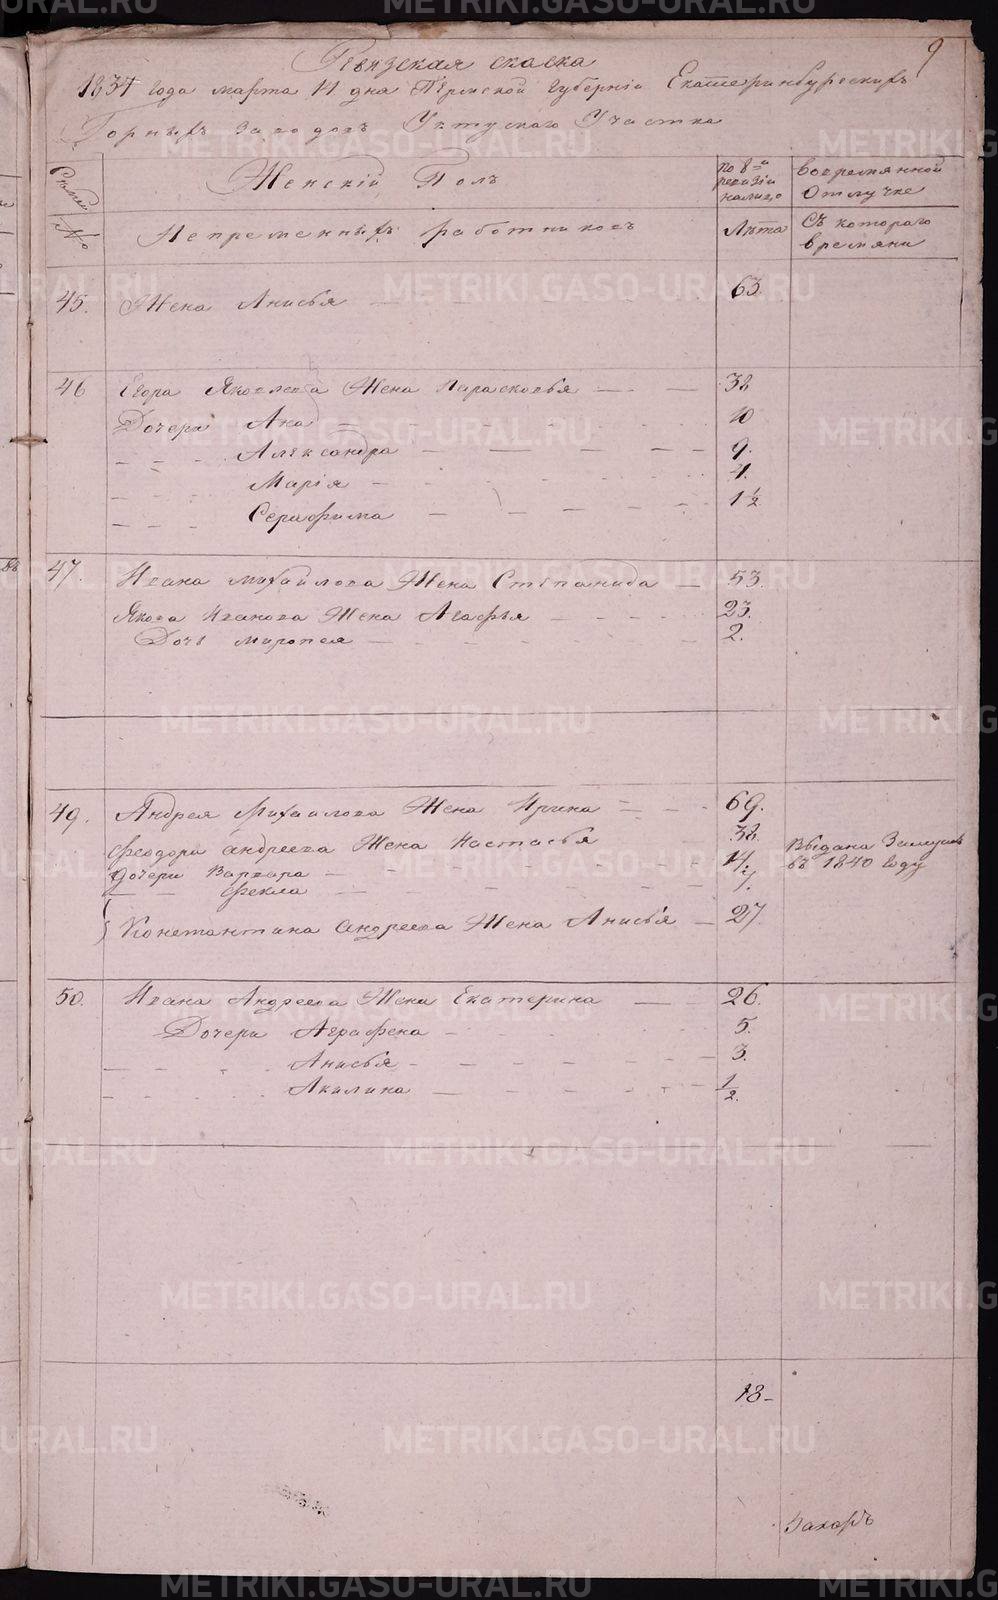 9
Ревизская скаска
1834 года марта 14 дня Пермской губернии Екатеринбургскихъ
Горныхъ Заводовъ Уктускаго Участка
№
Женскій Полъ
по 8й ревизіи налицо
вовремянной Отлучке
Непременныхъ работниковъ
Лѣта
Съ котораго времяни
45. Жена Анисья 63.
46 Егора Яковлева Жена Парасковья 32
Дочери Ана 10
Александра 9.
Марія 4.
Серафима 1 1/2
47. Ивана михайлова Жена Степанида 53.
Якова Иванова Жена Агафья 23.
Дочь 2.
49. Андрея Михайлова Жена Ирина 69.
Феодора Андреева Жена Настасья 32
Дочери Варвара 14
Фекла 7.
Выдана
въ 1840 году
Константина Андреева Жена Анисья 27
50. Ивана Андреева Жена Екатерина 26.
Дочери Аграфена 5.
Анисья 3.
Акилина 1/2.
18
Захаръ
METRIKI.GASO-URAL.RU